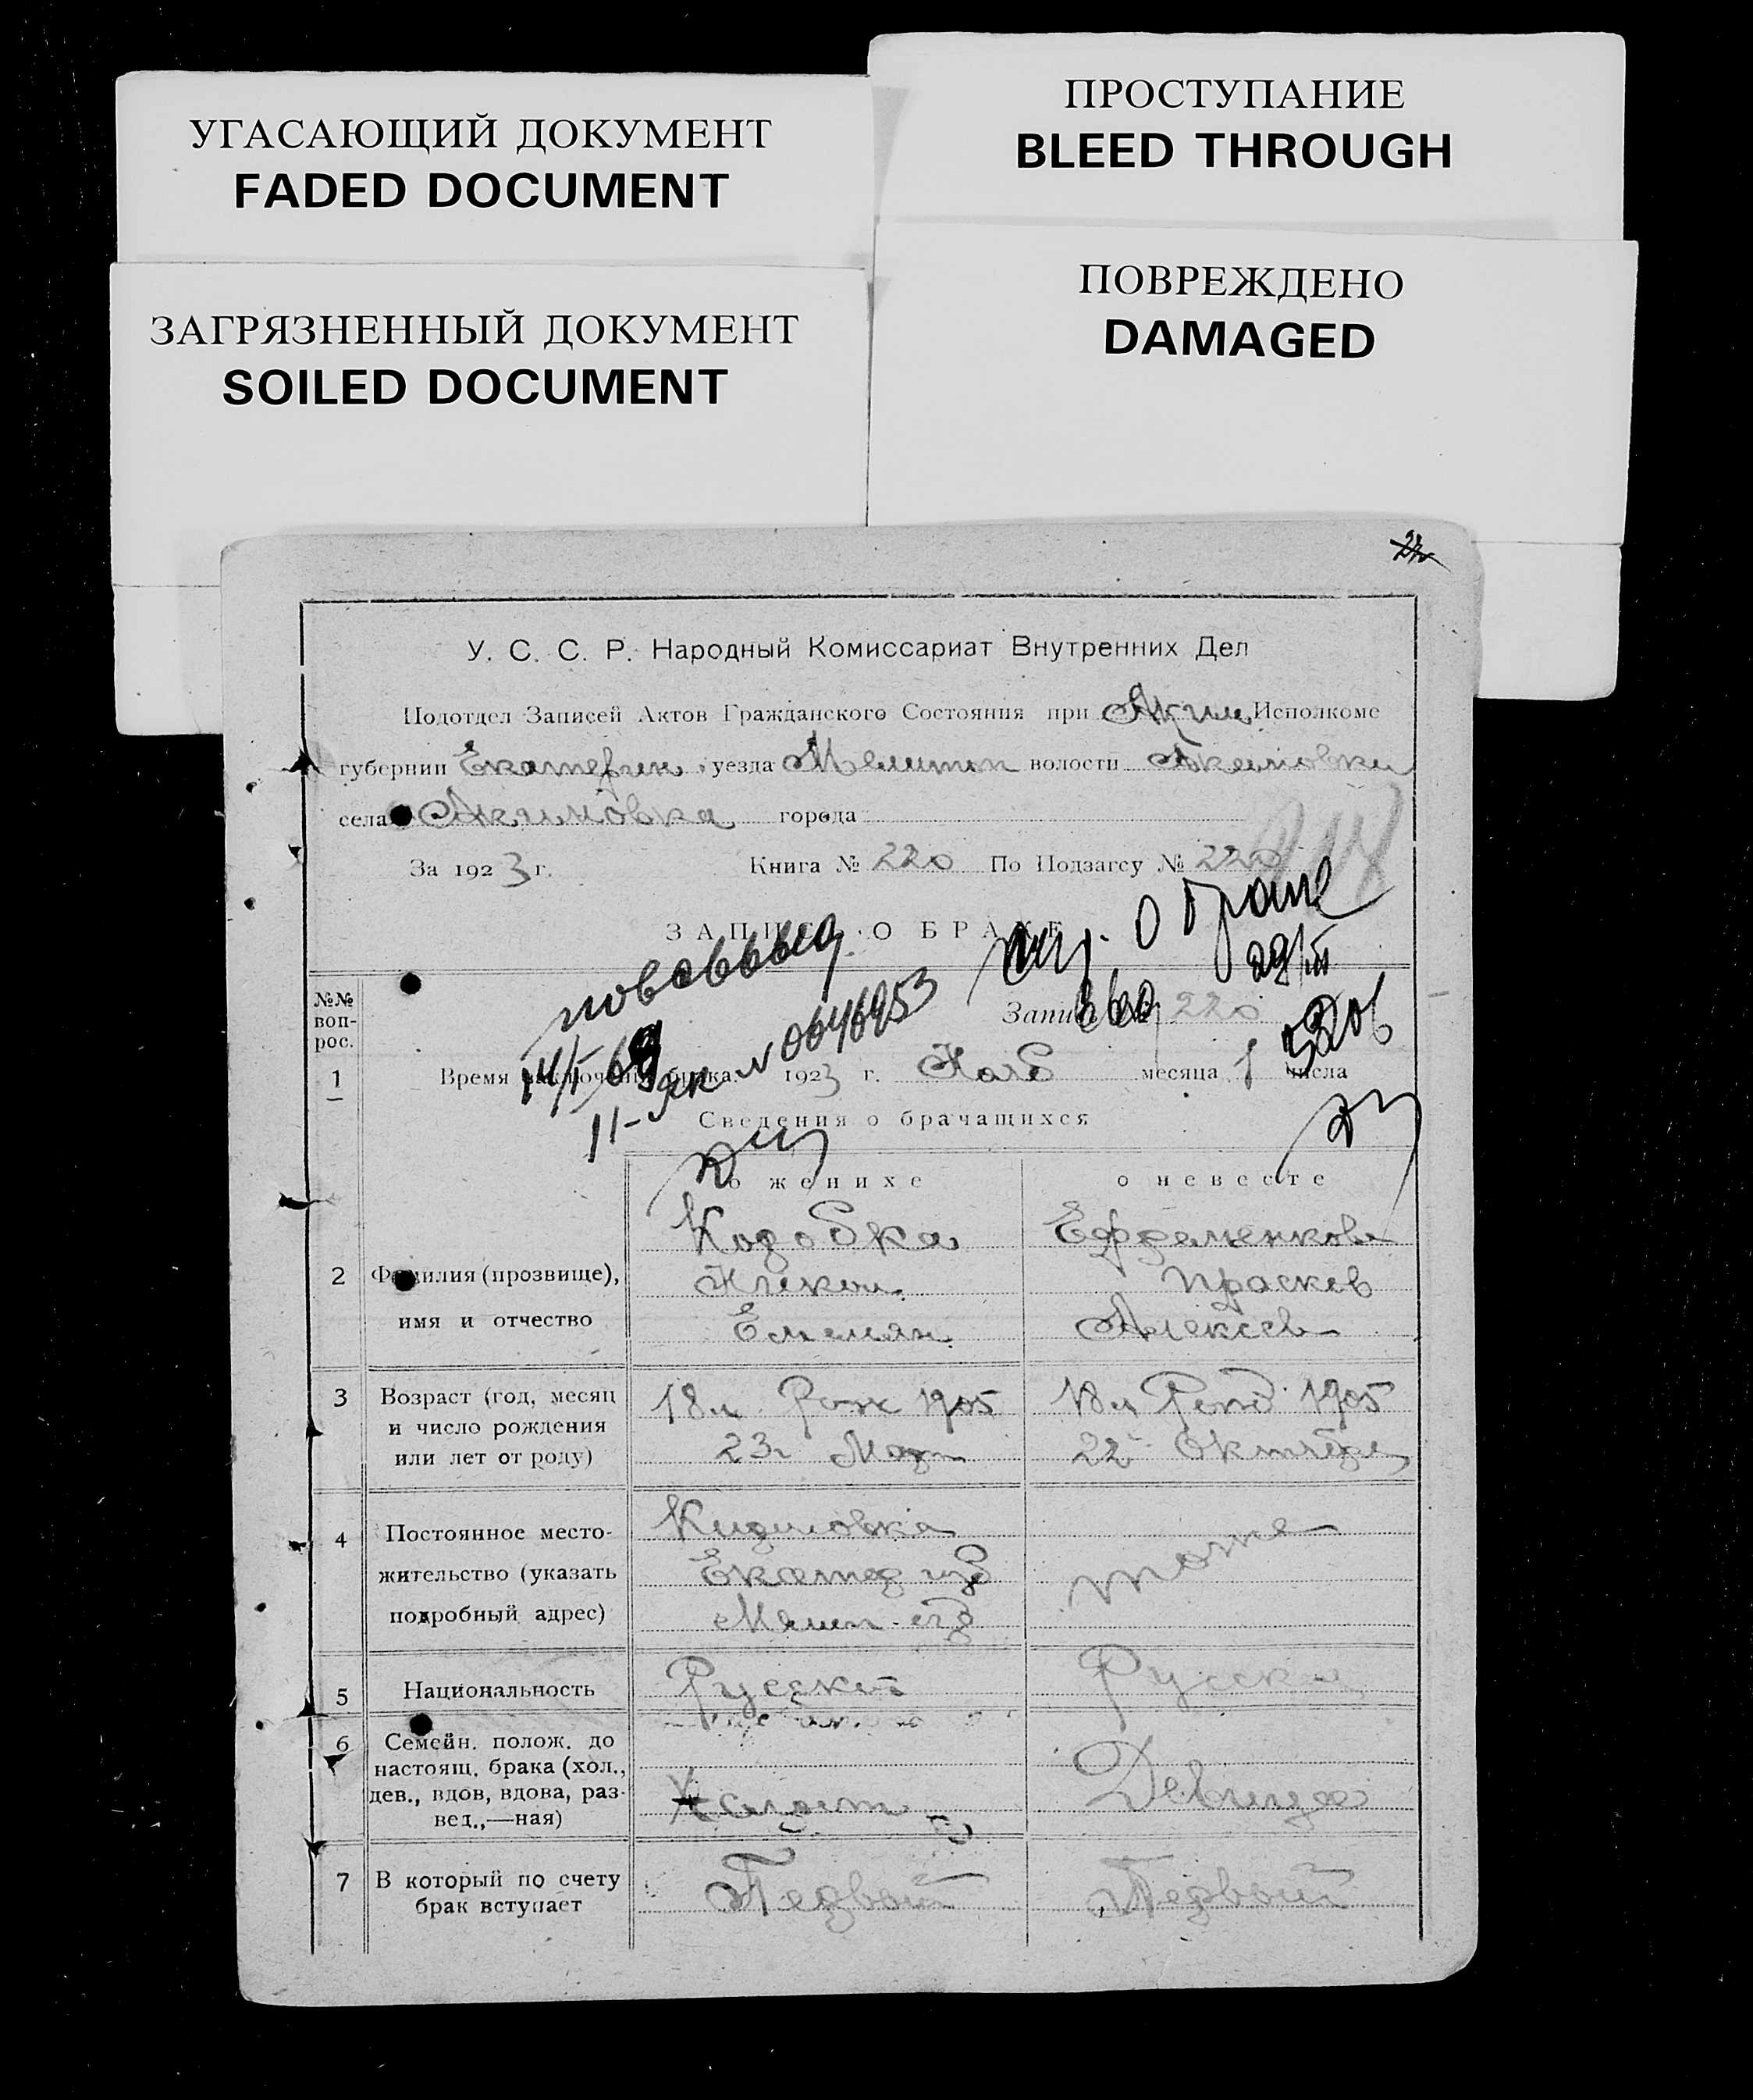 УГАСАЮЩИЙ ДОКУМЕНТ
FADED DOCUMENT
ПРОСТУПАНИЕ
BLEED THROUGH
ЗАГРЯЗНЕННЫЙ ДОКУМЕНТ
SOILED DOCUMENT
ПОВРЕЖДЕНО
DAMAGED
У. С. С. Р. Народный Комиссариат Внутренних Дел
Подотдел Записей Актов Гражданского Состояния при Аким Исполкоме
губернии Екатерин уезда Мелитоп волости Акимовки
села Акимовка города
За 1923 г. Книга № 220 По Подзагсу № 220
ЗАПИСЬ О БРАКЕ
о браке
повсевыд
Запись 220
№ 0646953
№№ воп-рос.
1 Время заключения брака 1923 г. Нояб месяца 1 числа
Сведения о брачащихся
о женихе о невесте
2 Фамилия (прозвище),
имя и отчество
Кодобка
Емельян
Ефременкова
Прасков
Алексеев
3 Возраст (год, месяц
и число рождения
или лет от роду)
18 л. Рож 1905
23 Мар
18 л Рожд 1905
22 Октября
4 Постоянное место-
жительство (указать
подробный адрес)
Кирилловка
Екатер губ
Мелит. езд
тоже
5 Национальность Русский Русская
6 Семейн. полож. до
настоящ. брака (хол.,
дев., вдов, вдова, раз-
вед.,—ная)
Холост
Девица
7 В который по счету
брак вступает
Первый Первый